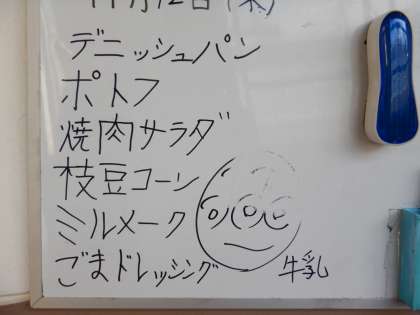 11月12日(木)
デニッシュパン
ポトフ
焼肉サラダ
枝豆コーン
ミルメーク
ごまドレッシング 牛乳